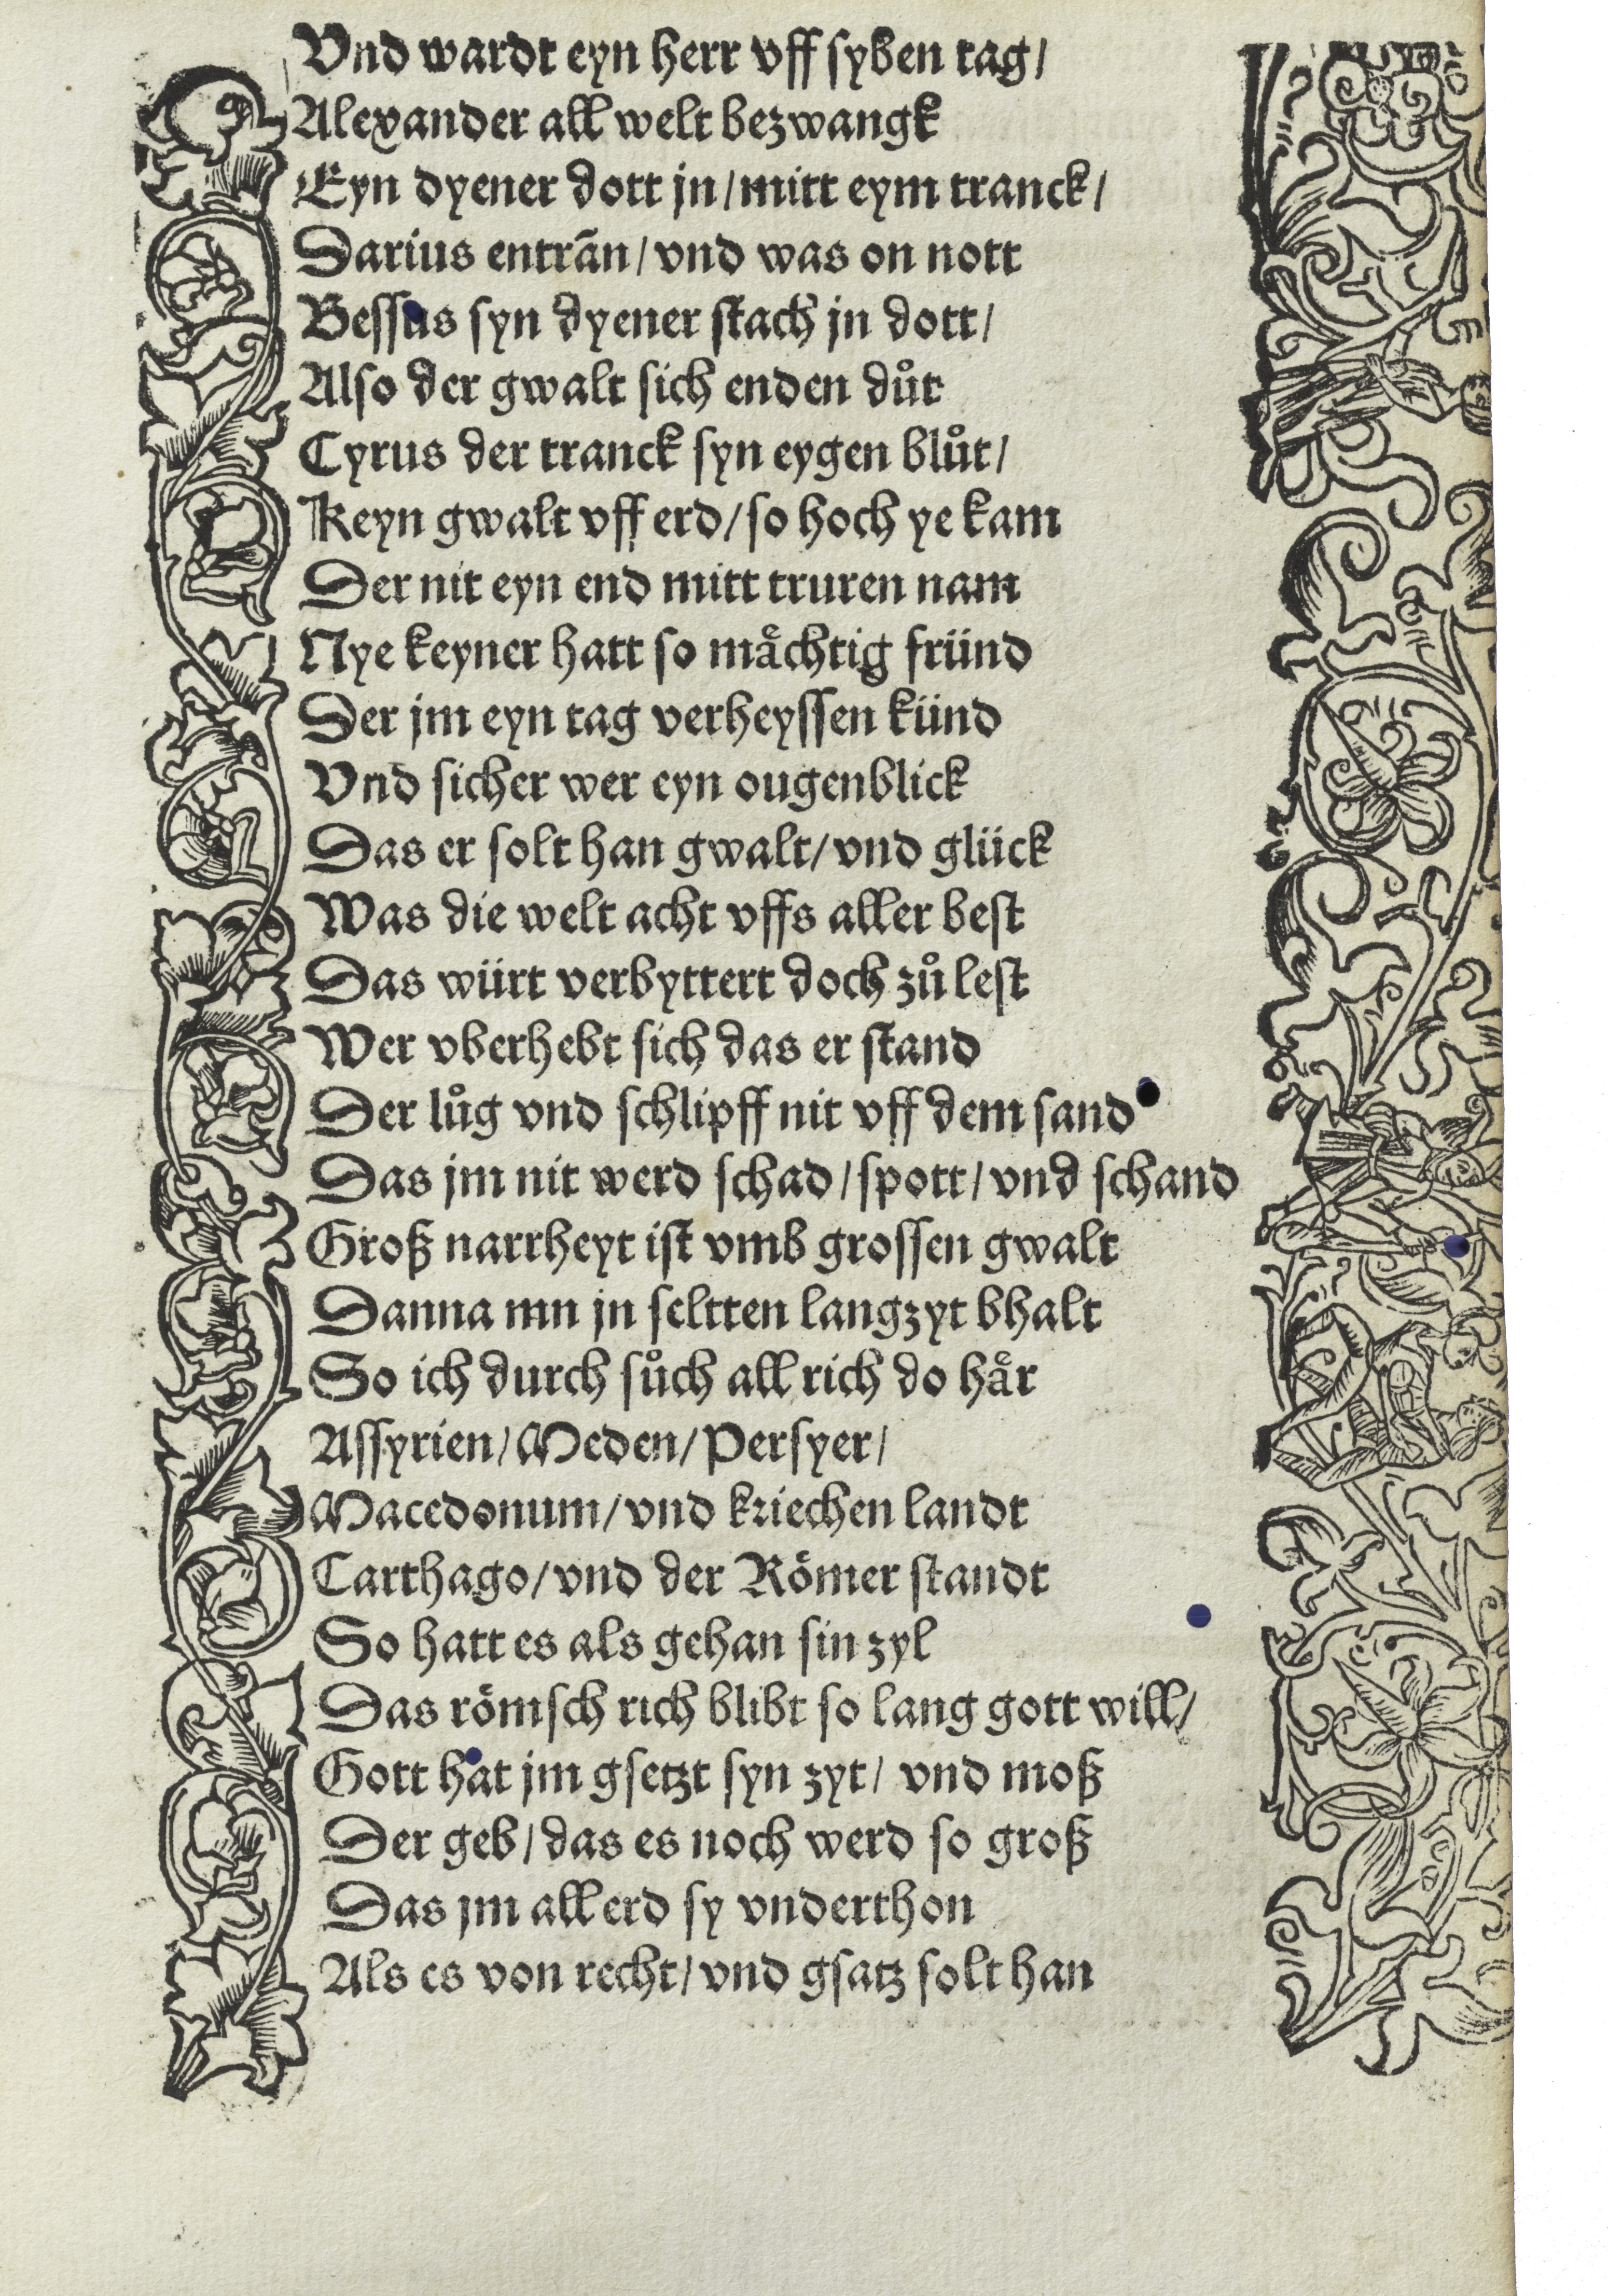 Vnd wardt eyn herr vff syben tag/
Alexander all welt bezwangk
Eyn dyener dott jn/mitt eym tranck/
Darius entrãn/vnd was on nott
Bessus syn dyener stach jn dott/
Also der gwalt sich enden důt
Cyrus der tranck syn eygen blůt/
Keyn gwalt vff erd/so hoch ye kam
Der nit eyn end mitt truren nam
Nye keyner hatt so maͤchtig fründ
Der jm eyn tag verheyssen künd
Vnd sicher wer eyn ougenblick
Das er solt han gwalt/vnd glück
Was die welt acht vffs aller best
Das würt verbyttert doch zů lest
Wer vberhebt sich das er stand
Der lůg vnd schlipff nit vff dem sand
Das jm nit werd schad/spott/vnd schand
Groß narrheyt ist vmb grossen gwalt
Danna mn jn seltten langzyt bhalt
So ich durch sůch all rich do haͤr
Assyrien/Meden/Persyer/
Macedonum/vnd kriechen landt
Carthago/vnd der Roͤmer standt
So hatt es als gehan sin zyl
Das roͤmsch rich blibt so lang gott will/
Gott hat jm gsetzt syn zyt/ vnd moß
Der geb/das es noch werd so groß
Das jm all erd sy vnderthon
Als es von recht/vnd gsatz solt han